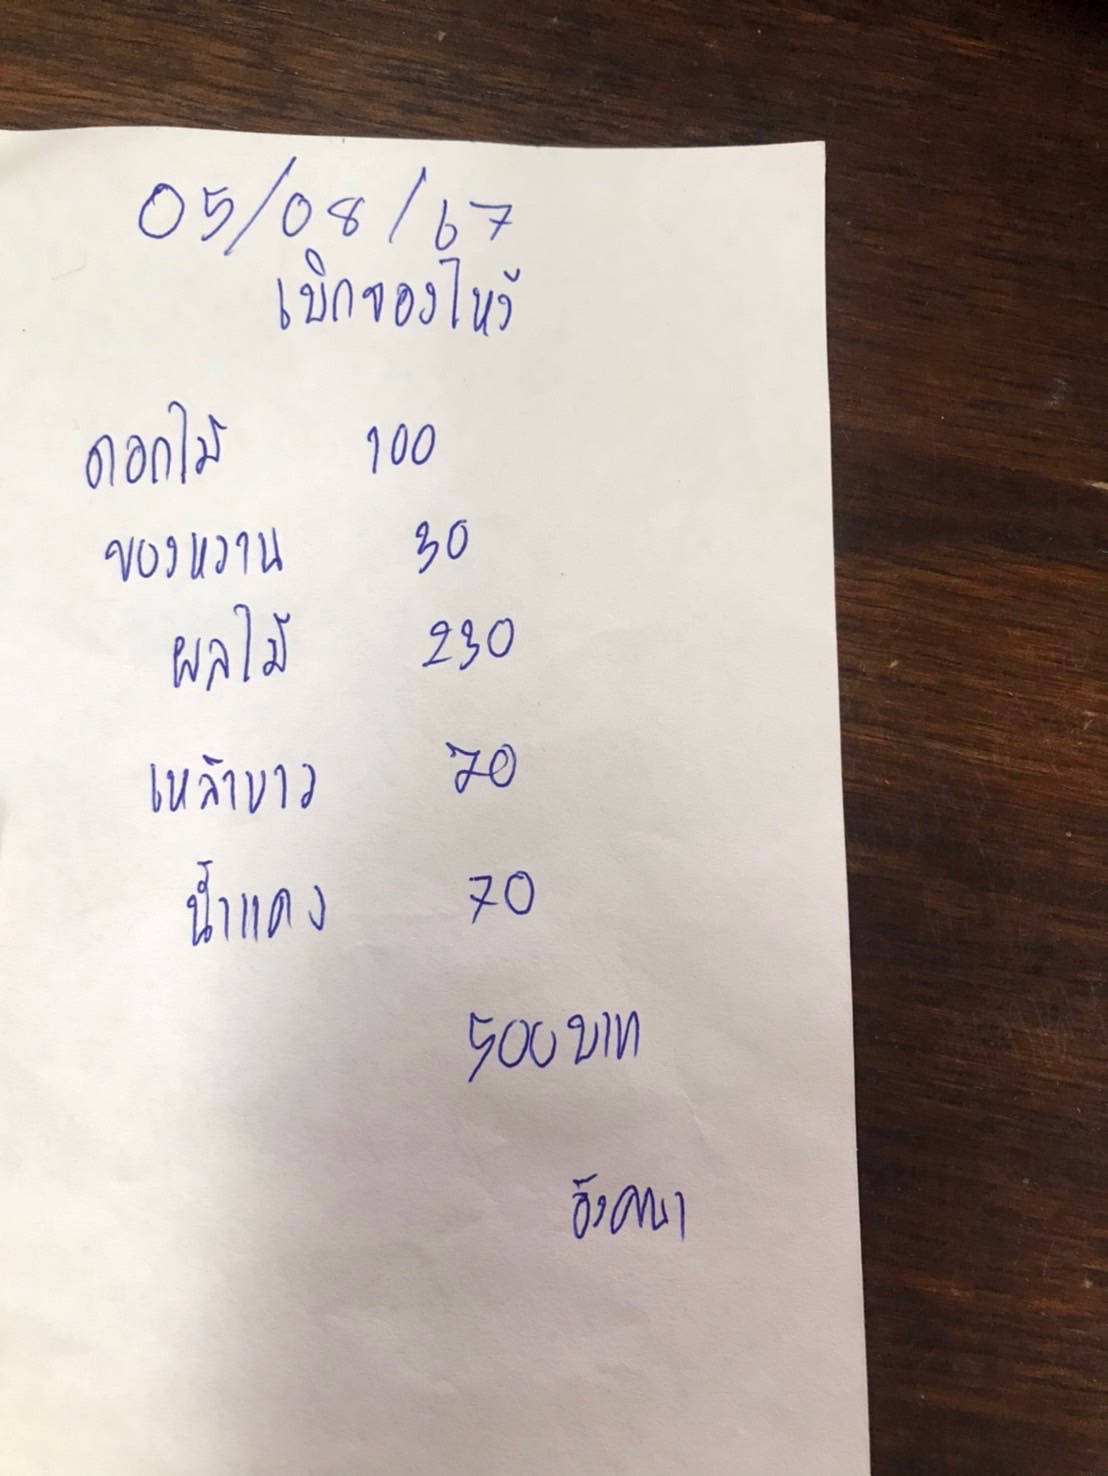 05/08/67
เบิกของไหว้
ดอกไม้ 100
ของหวาน 30
ผลไม้ 230
เหล้าขาว 70
น้ำแดง 70
500 บาท
อังคณา